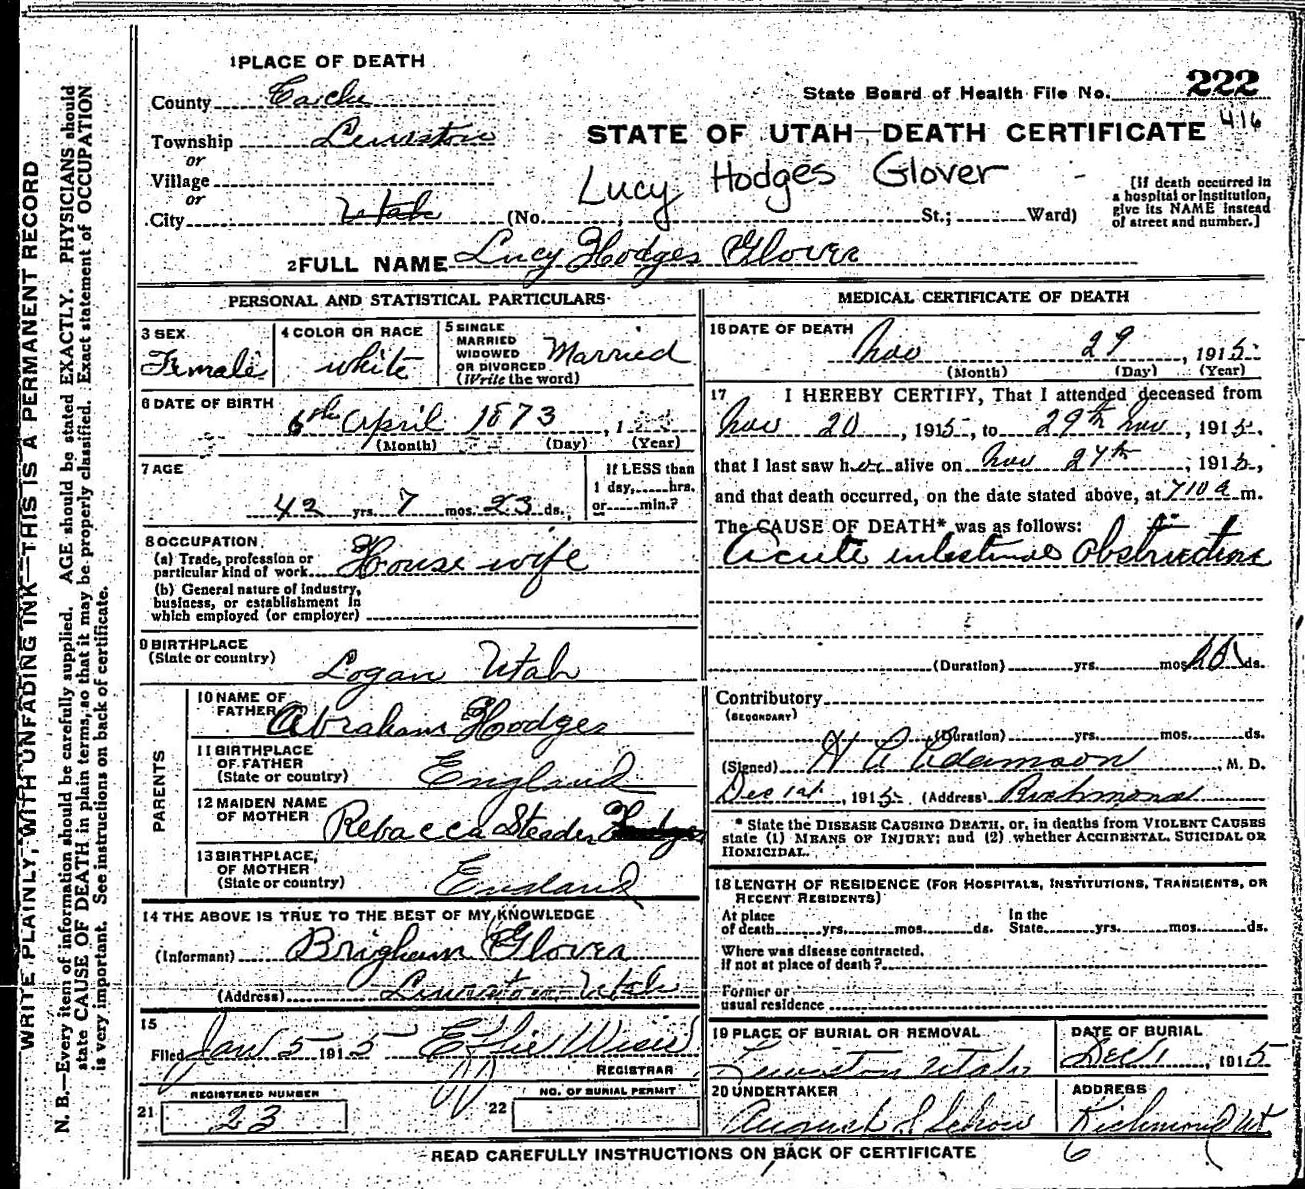 1 PLACE OF DEATH
County Cache
Township Lewiston
or
Village
or
City Utah (No. St.; Ward)
State Board of Health File No. 222
416
STATE OF UTAH—DEATH CERTIFICATE
Lucy Hodges Glover
[If death occurred in
a hospital or institution,
give its NAME instead
of street and number.]
2 FULL NAME Lucy Hodges Glover
PERSONAL AND STATISTICAL PARTICULARS
3 SEX
Female
4 COLOR OR RACE
white
5 SINGLE
MARRIED
WIDOWED
OR DIVORCED
(Write the word)
Married
6 DATE OF BIRTH
6th April 1873, 1
(Month) (Day) (Year)
7 AGE
42 yrs. 7 mos. 23 ds.
If LESS than
1 day, hrs.
or min.?
8 OCCUPATION
(a) Trade, profession or
particular kind of work House wife
(b) General nature of industry,
business, or establishment in
which employed (or employer)
9 BIRTHPLACE
(State or country)
Logan Utah
PARENTS
10 NAME OF
FATHER
Abraham Hodges
11 BIRTHPLACE
OF FATHER
(State or country)
England
12 MAIDEN NAME
OF MOTHER
Rebacca Steader
13 BIRTHPLACE,
OF MOTHER
(State or country)
England
14 THE ABOVE IS TRUE TO THE BEST OF MY KNOWLEDGE
(Informant) Brigham Glover
(Address) Lewiston Utah
15
Filed Jan 5 1915 Effie Wise
REGISTRAR
REGISTERED NUMBER
21 23
NO. OF BURIAL PERMIT
22
MEDICAL CERTIFICATE OF DEATH
16 DATE OF DEATH
Nov 29, 1915
(Month) (Day) (Year)
17 I HEREBY CERTIFY, That I attended deceased from
Nov 20, 1915, to 29th Nov, 1915.
that I last saw her alive on Nov 27th, 1915,
and that death occurred, on the date stated above, at 710 a m.
The CAUSE OF DEATH* was as follows:
Acute intestinal obstruction
(Duration) yrs. mos. ds.
Contributory
(SECONDARY)
(Duration) yrs. mos. ds.
(Signed) H A Adamson, M. D.
Dec 1st, 1915 (Address) Richmond
* State the DISEASE CAUSING DEATH, or, in deaths from VIOLENT CAUSES
state (1) MEANS OF INJURY; and (2) whether ACCIDENTAL, SUICIDAL OR
HOMICIDAL.
18 LENGTH OF RESIDENCE (FOR HOSPITALS, INSTITUTIONS, TRANSIENTS, OR
RECENT RESIDENTS)
At place
of death yrs. mos. ds.
In the
State yrs. mos. ds.
Where was disease contracted,
if not at place of death?
Former or
usual residence
19 PLACE OF BURIAL OR REMOVAL
Lewiston Utah
DATE OF BURIAL
Dec 1, 1915
20 UNDERTAKER
August S Schow
ADDRESS
Richmond Ut
6
READ CAREFULLY INSTRUCTIONS ON BACK OF CERTIFICATE
WRITE PLAINLY, WITH UNFADING INK—THIS IS A PERMANENT RECORD
N. B.—Every item of information should be carefully supplied. AGE should be stated EXACTLY. PHYSICIANS should
state CAUSE OF DEATH in plain terms, so that it may be properly classified. Exact statement of OCCUPATION
is very important. See instructions on back of certificate.